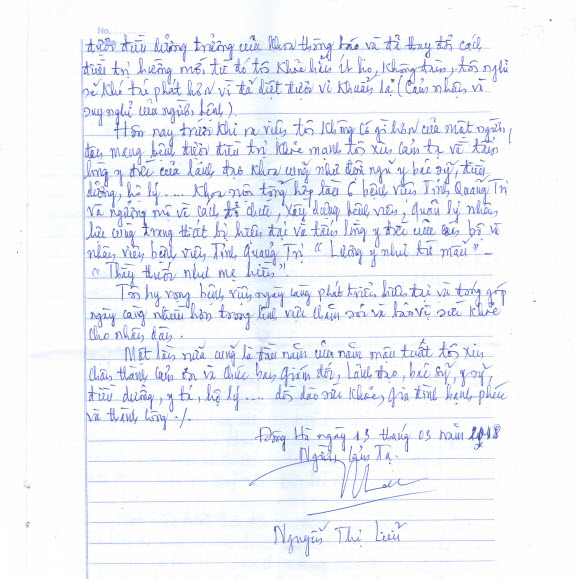 No.
được điều dưỡng trưởng của khoa thông báo và đã thay đổi cách
điều trị hướng mới từ đó tôi khỏe hẳn ít ho, không đàm, tôi nghĩ
sẽ khó tái phát hơn vì đã diệt được vi khuẩn lạ (Cảm nhận và
suy nghĩ của người bệnh).
Hôm nay trước khi ra viện tôi không có gì hơn của một người
mang bệnh được điều trị khỏe mạnh tôi xin cảm tạ về tấm
lòng y đức của lãnh đạo khoa cũng như đội ngũ y bác sỹ, điều
dưỡng, hộ lý .... Khoa nội tổng hợp lầu 6 bệnh viện Tỉnh Quảng Trị
và ngưỡng mộ về cách tổ chức, xây dựng bệnh viện, quản lý nhân
lực cùng trang thiết bị hiện đại và tấm lòng y đức của cán bộ và
nhân viên bệnh viện Tỉnh Quảng Trị " Lương y như từ mẫu " -
" Thầy thuốc như mẹ hiền".
Tôi hy vọng bệnh viện ngày càng phát triển hiện đại và đóng góp
ngày càng nhiều hơn trong lĩnh vực chăm sóc và bảo vệ sức khỏe
cho nhân dân.
Một lần nữa cũng là đầu năm của năm mậu tuất tôi xin
chân thành cảm ơn và chúc ban giám đốc, lãnh đạo, bác sỹ, y sỹ,
điều dưỡng, y tá, hộ lý .... dồi dào sức khỏe, gia đình hạnh phúc
và thành công ./.
Đông Hà ngày 13 tháng 03 năm 2018
Người cảm Tạ.
Nguyễn Thị Liễu